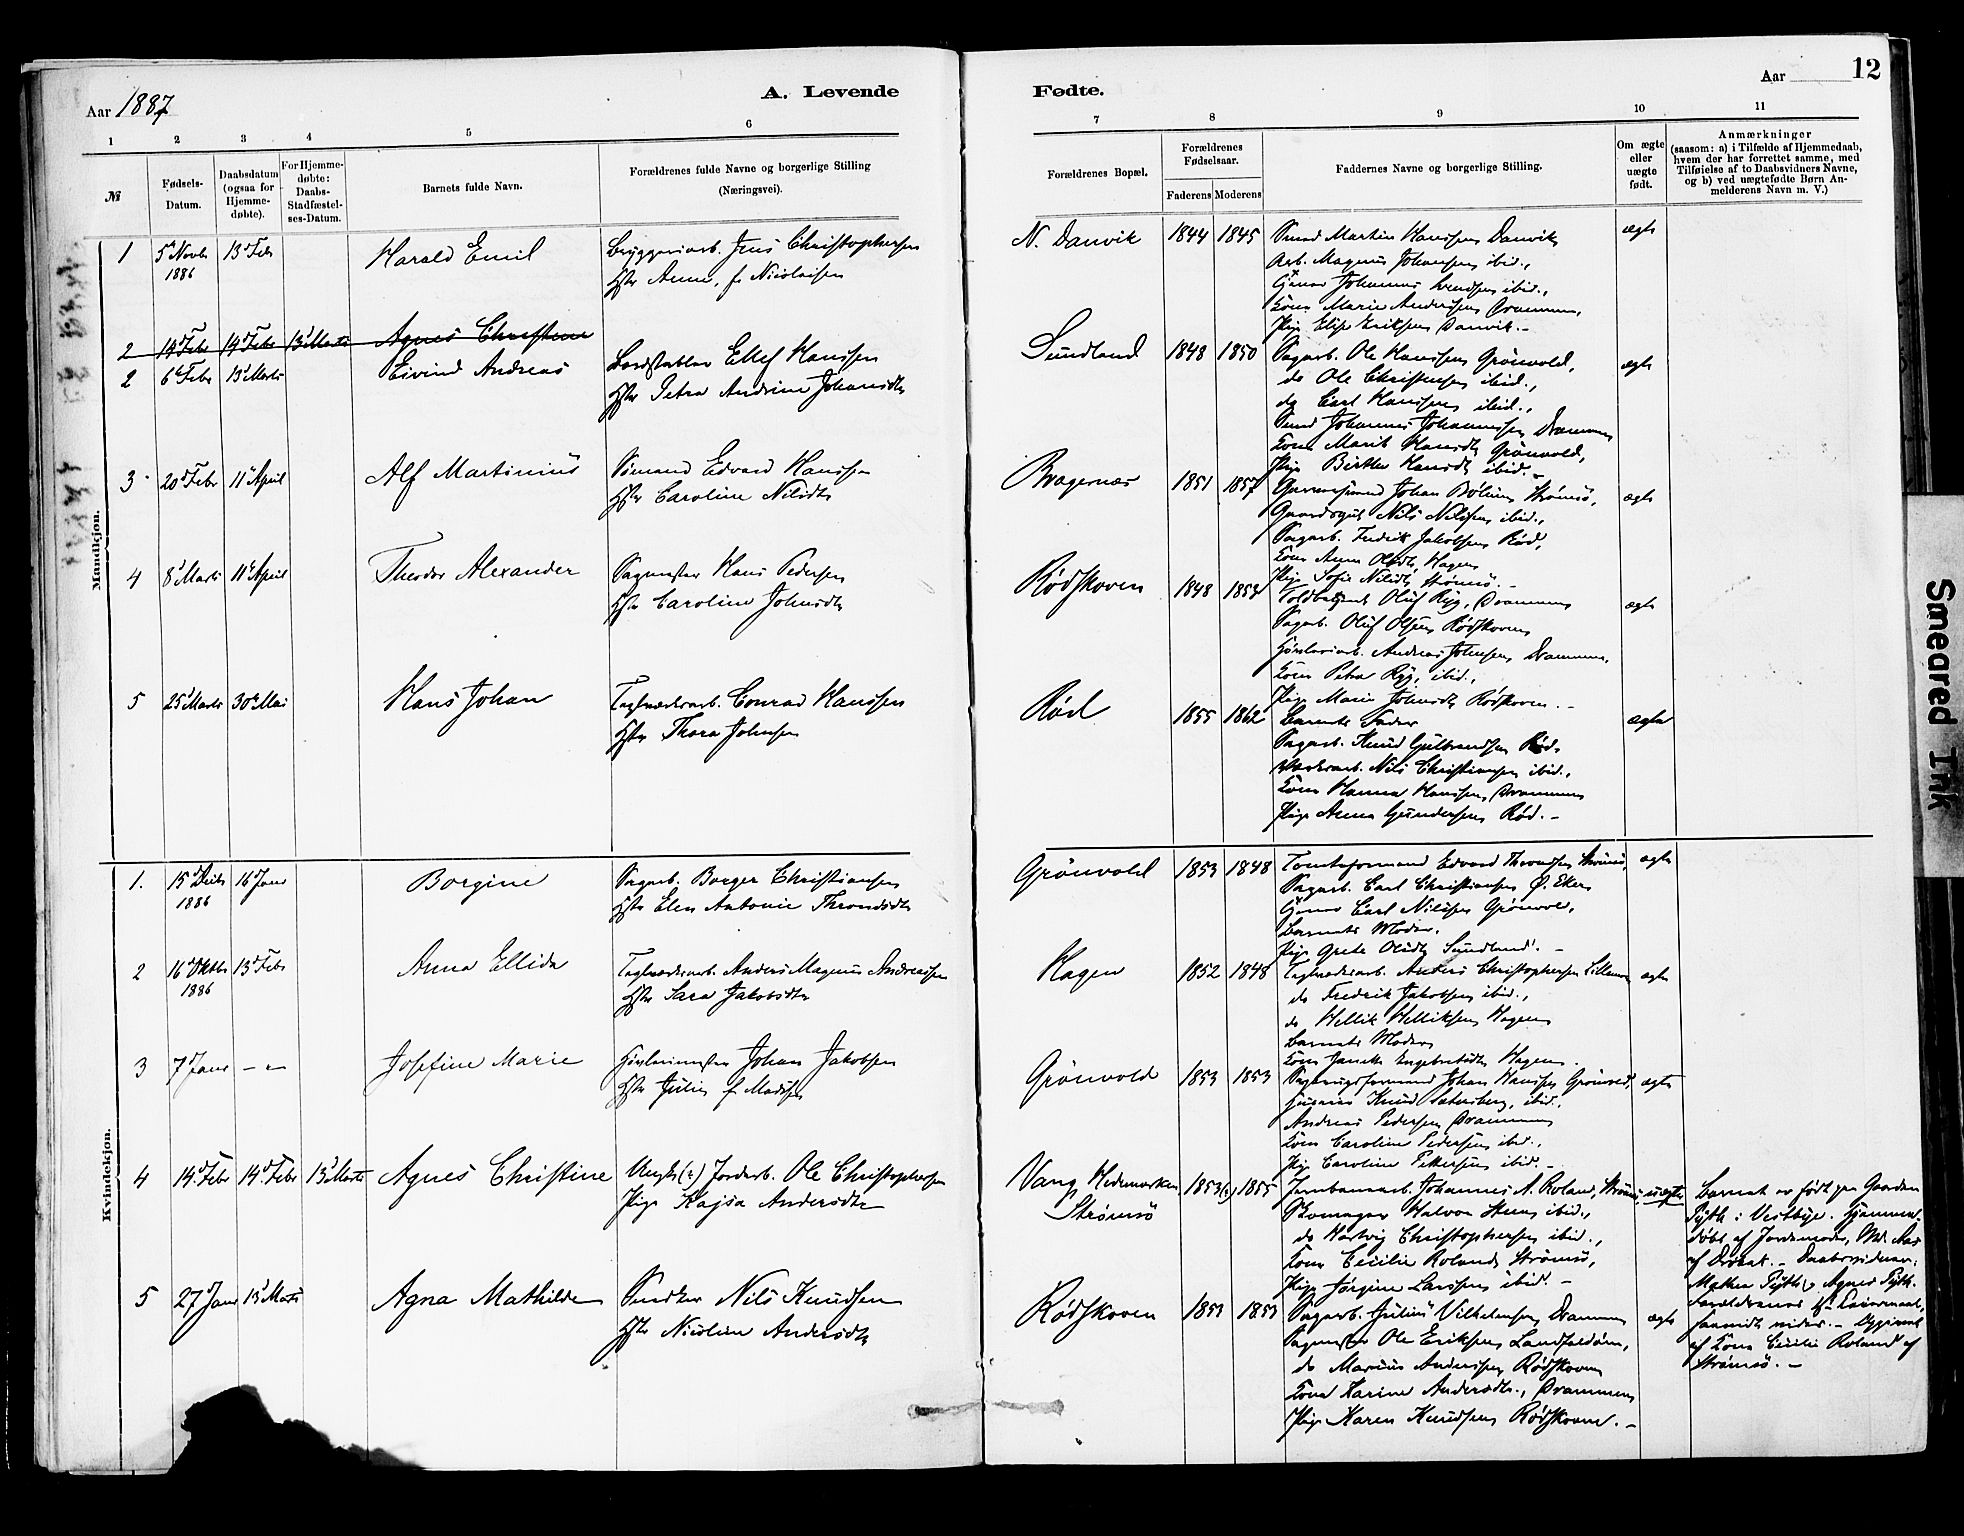 Aar 1887
A. Levende
Fødte.
Aar
12
1 2 3 4 5 6 7 8 9 10 11
№
Fødsels-
Datum.
Daabsdatum
(ogsaa for
Hjemme-
døbte).
For Hjemme-
døbte:
Daabs-
Stadfæstel-
ses-Datum.
Barnets fulde Navn.
Forældrenes fulde Navne og borgerlige Stilling
(Næringsvei).
Forældrenes Bopæl.
Forældrenes
Fødselsaar.
Faderens Moderens
Faddernes Navne og borgerlige Stilling.
Om ægte
eller
uægte
født.
Anmærkninger
(saasom: a) i Tilfælde af Hjemmedaab,
hvem der har forrettet samme, med
Tilføielse af to Daabsvidners Navne,
og b) ved uægtefødte Børn An-
melderens Navn m. V.)
Mandkjøn.
1 5 Novb 1886 13 Feb
Harald Emil
Bryggeriarb. Jens Christophersen
Hstr Anne, f. Nicolaisen
N. Danvik 1844 1845
Smed Martin Hanssen Danvik
Arb. Magnus Johansen ibid.,
Johannes Svendsen ibid.,
Kone Marie Andersen Drammen,
Pige Elise Eriksen Danvik. –
ægte
2 14 Febr 14 Febr 13 Marts Agnes Christine
2 6 Febr 13 Marts
Eivind Andreas
Bordstabler Ellef Hanssen
Hstr Petra Andrine Johansdtr
Sundland 1848 1850
Sagarb. Ole Hanssen Grönvold,
do Ole Christensen ibid.,
do Carl Hanssen ibid.,
Smed Johannes Johannessen Drammen
Kone Marit Hansdtr Grönvold,
Pige Birthe Hansdtr ibid. –
ægte
3 20 Febr 11 April
Alf Martinius
Sömand Edvard Hanssen
Hstr Caroline Nilsdtr
Bragernæs 1851 1857
Johan Strömsö,
Gaardsgut Nils Nilssen ibid.,
Sagarb. Fredrik Jakobsen Röd,
Kone Anna Olsdtr Hagen
Pige Sofie Nilsdtr Strömsö. –
ægte
4 8 Marts 11 April
Theodor Alexander
Sagmester Hans Pedersen
Hstr Caroline Johnsdtr
Rödskoven 1848 1854
Toldbetjent Oluf Ryg, Drammen
Sagarb. Oluf Olsen Rödskoven
Andreas Johnsen, Drammen,
Kone Petra Ryg, ibid.,
Pige Marie Johnsdtr Rödskoven. –
ægte
5 25 Marts 30 Mai
Hans Johan
Teglværksarb. Conrad Hanssen
Hstr Thora Johnsen
Röd 1855 1862
Barnets Fader
Sagarb. Knud Gulbrandsen Röd,
Værksarb. Nils Christiansen ibid.,
Kone Hanna Hanssen, Drammen
Pige Anna Gundersen Röd. –
ægte
Kvindekjøn.
1. 15 Decbr 1886 16 Janr
Borgine
Sagarb. Borger Christiansen
Hstr Elen Antonie Throndsdtr
Grönvold 1853 1848
Tomteformand Edvard Throndsen Strömsö,
Sagarb. Carl Christiansen Ö. Eker
Carl Nilssen Grönvold,
Barnets Moder,
Pige Grete Olsdtr Sundland. –
ægte
2 16 Oktbr 1886 13 Febr
Anna Ellida
Teglværksarb. Anders Magnus Andreassen
Hstr Sara Jakobsdtr
Hagen 1852 1848
Teglværksarb. Anders Christophersen
do Fredrik Jakobsen ibid.,
do Hellik Helliksen Hagen
Barnets Moder
Kone Engebretsdtr Hagen.
ægte
3 7 Janr – „ –
Josefine Marie
Johan Jakobsen
Hstr Julie f. Madsen
Grönvold 1853 1853
Sagbrugsformand Johan Hanssen Grönvold,
Knud ibid.,
Andreas Pedersen Drammen
Kone Caroline Pedersen ibid.,
Pige Caroline Pettersen ibid. –
ægte
4 14 Febr 14 Febr 13 Marts
Agnes Christine
Ungk. (?) Jordarb. Ole Christophersen
Pige Kajsa Andersdtr
Vang Hedemarken
Strömsö 1853(?) 1855
Jernbanearb. Johannes A. Roland, Strömsö
Skomager Halvor ibid.,
do Hartvig Christophersen ibid.,
Kone Cecilie Roland, Strömsö,
Pige Jörgine Larssen ibid. –
uægte
Barnet er født paa Gaarden
i Vestbye. Hjemme-
döbt af Jordemoder,
af Dröbak. – Daabsvidner:
Agnes
af Kone Cecilie Roland af
Strömsö. –
5 27 Janr 13 Marts
Agna Mathilde
Snedker Nils Knudsen
Hstr Nicoline Andersdtr
Rödskoven 1853 1853
Sagarb. Julius Vilhelmsen, Drammen
Sagmester Ole Eriksen Landfaldöen,
do Marius Anderssen Rödskoven
Kone Karine Andersdtr., Drammen,
Pige Karen Knudsen Rödskoven. –
ægte
Smeared Ink